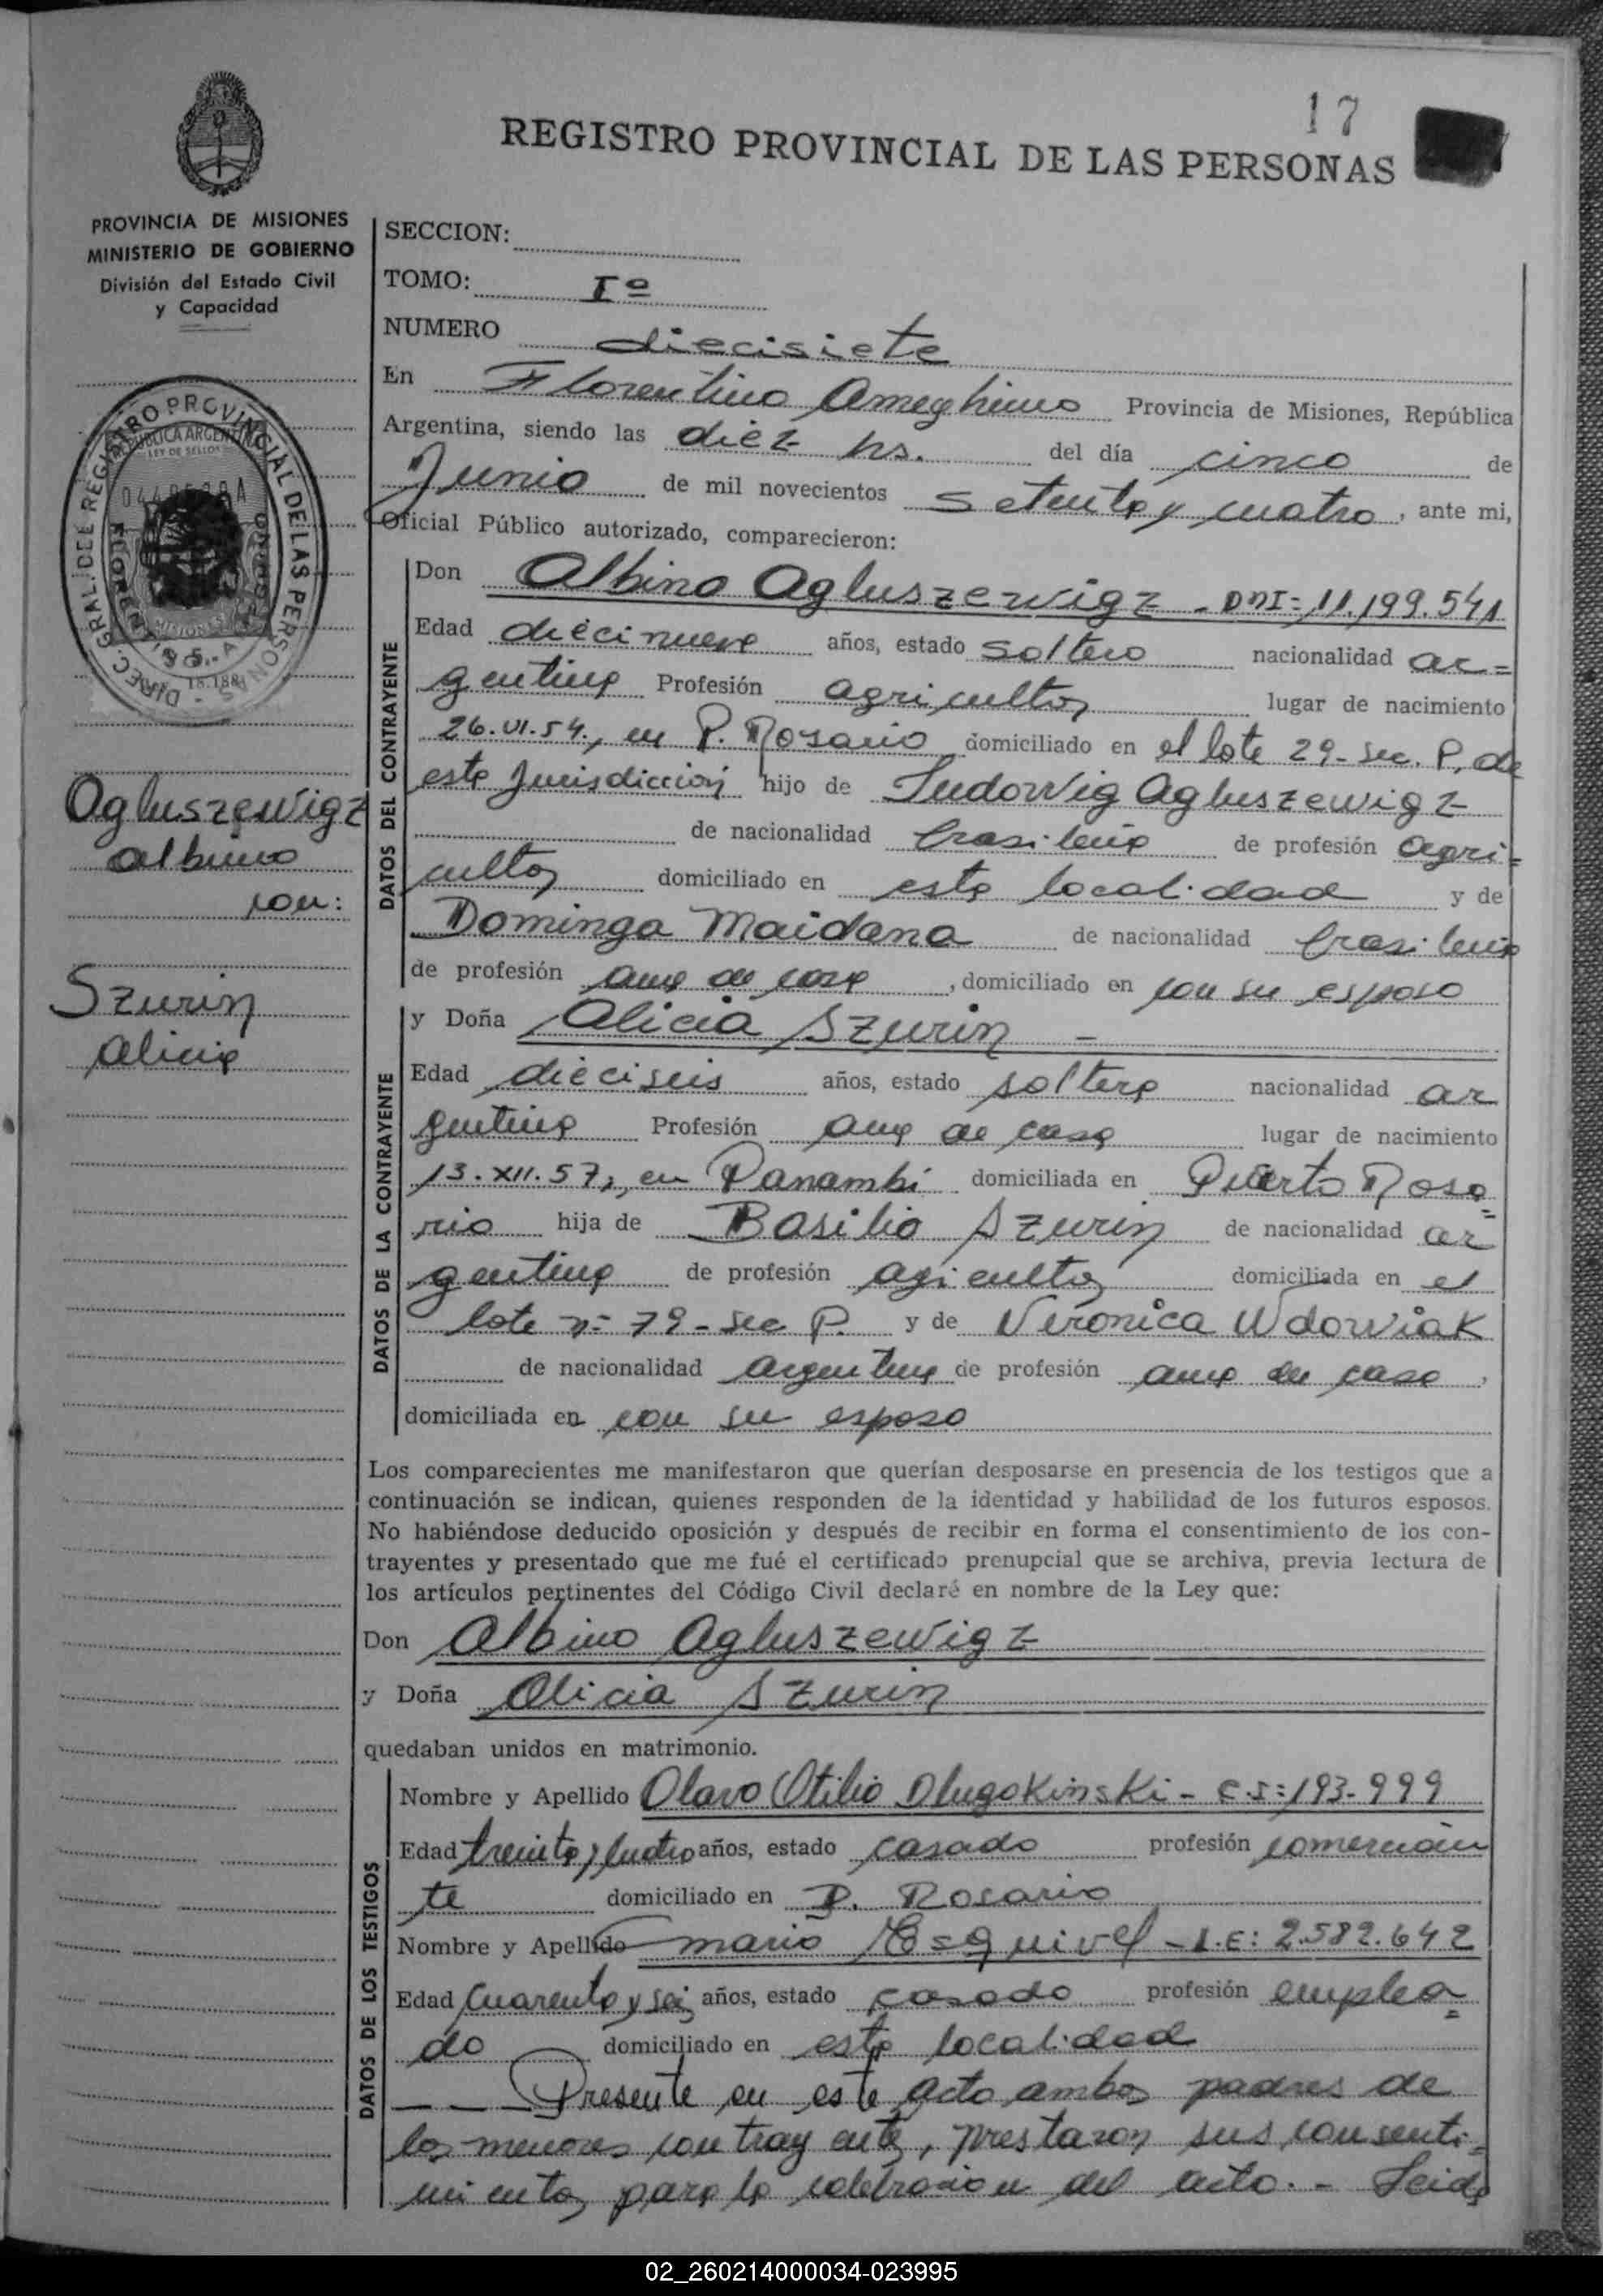 17
REGISTRO PROVINCIAL DE LAS PERSONAS
PROVINCIA DE MISIONES
MINISTERIO DE GOBIERNO
División del Estado Civil
y Capacidad
DIREC. GRAL. DEL REGISTRO PROVINCIAL DE LAS PERSONAS
REPUBLICA ARGENTINA
LEY DE SELLOS
MISIONES
Agluszewigz
Albino
con:
Szurin
Alicia
SECCION:
TOMO: Iº
NUMERO diecisiete
En Florentino Ameghino Provincia de Misiones, República
Argentina, siendo las diez hs. del día cinco de
Junio de mil novecientos setenta y cuatro, ante mi,
Oficial Público autorizado, comparecieron:
DATOS DEL CONTRAYENTE
Don Albino Agluszewigz - DNI= 11.199.541
Edad diecinueve años, estado soltero nacionalidad ar=
gentina Profesión agricultor lugar de nacimiento
26.VI.54., en P. Rosario domiciliado en el lote 29- sec. P. de
esta Jurisdicción hijo de Ludowig Agluszewigz
de nacionalidad brasileña de profesión agri=
cultor domiciliado en esta localidad y de
Dominga Maidana de nacionalidad brasileña
de profesión ama de casa, domiciliado en con su esposo
DATOS DE LA CONTRAYENTE
y Doña Alicia Szurin -
Edad dieciseis años, estado soltera nacionalidad ar
gentina Profesión ama de casa lugar de nacimiento
13.XII.57., en Panambi domiciliada en Puerto Rosa=
rio hija de Basilio Szurin de nacionalidad ar=
gentina de profesión agricultor domiciliada en el
lote nº 79- sec P. y de Veronica Wdowiak
de nacionalidad argentina de profesión ama de casa,
domiciliada en con su esposo
Los comparecientes me manifestaron que querían desposarse en presencia de los testigos que a
continuación se indican, quienes responden de la identidad y habilidad de los futuros esposos.
No habiéndose deducido oposición y después de recibir en forma el consentimiento de los con-
trayentes y presentado que me fué el certificado prenupcial que se archiva, previa lectura de
los artículos pertinentes del Código Civil declaré en nombre de la Ley que:
Don Albino Agluszewigz
y Doña Alicia Szurin
quedaban unidos en matrimonio.
DATOS DE LOS TESTIGOS
Nombre y Apellido Olavo Otilio Dlugokinski - C.I:193-999
Edad treinta y cuatro años, estado casado profesión comercian
te domiciliado en P. Rosario
Nombre y Apellido Mario Esquivel - L.E: 2.582.642
Edad Cuarenta y seis años, estado casado profesión emplea=
do domiciliado en esta localidad
Presente en este acto ambos padres de
los menores contrayentes, prestaron sus consenti=
mientos para la celebracion del acto. - Leida
02_260214000034-023995